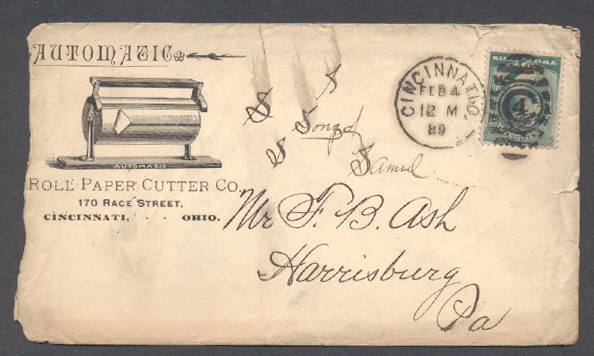 AUTOMATIC
AUTOMATIC
ROLL PAPER CUTTER CO.
170 RACE STREET,
CINCINNATI, - - OHIO.
CINCINNATI, O.
FEB 4
12 M.
89
4
S
S S
S S
Song of
Samuel
Mr F. B. Ash
Harrisburg
Pa